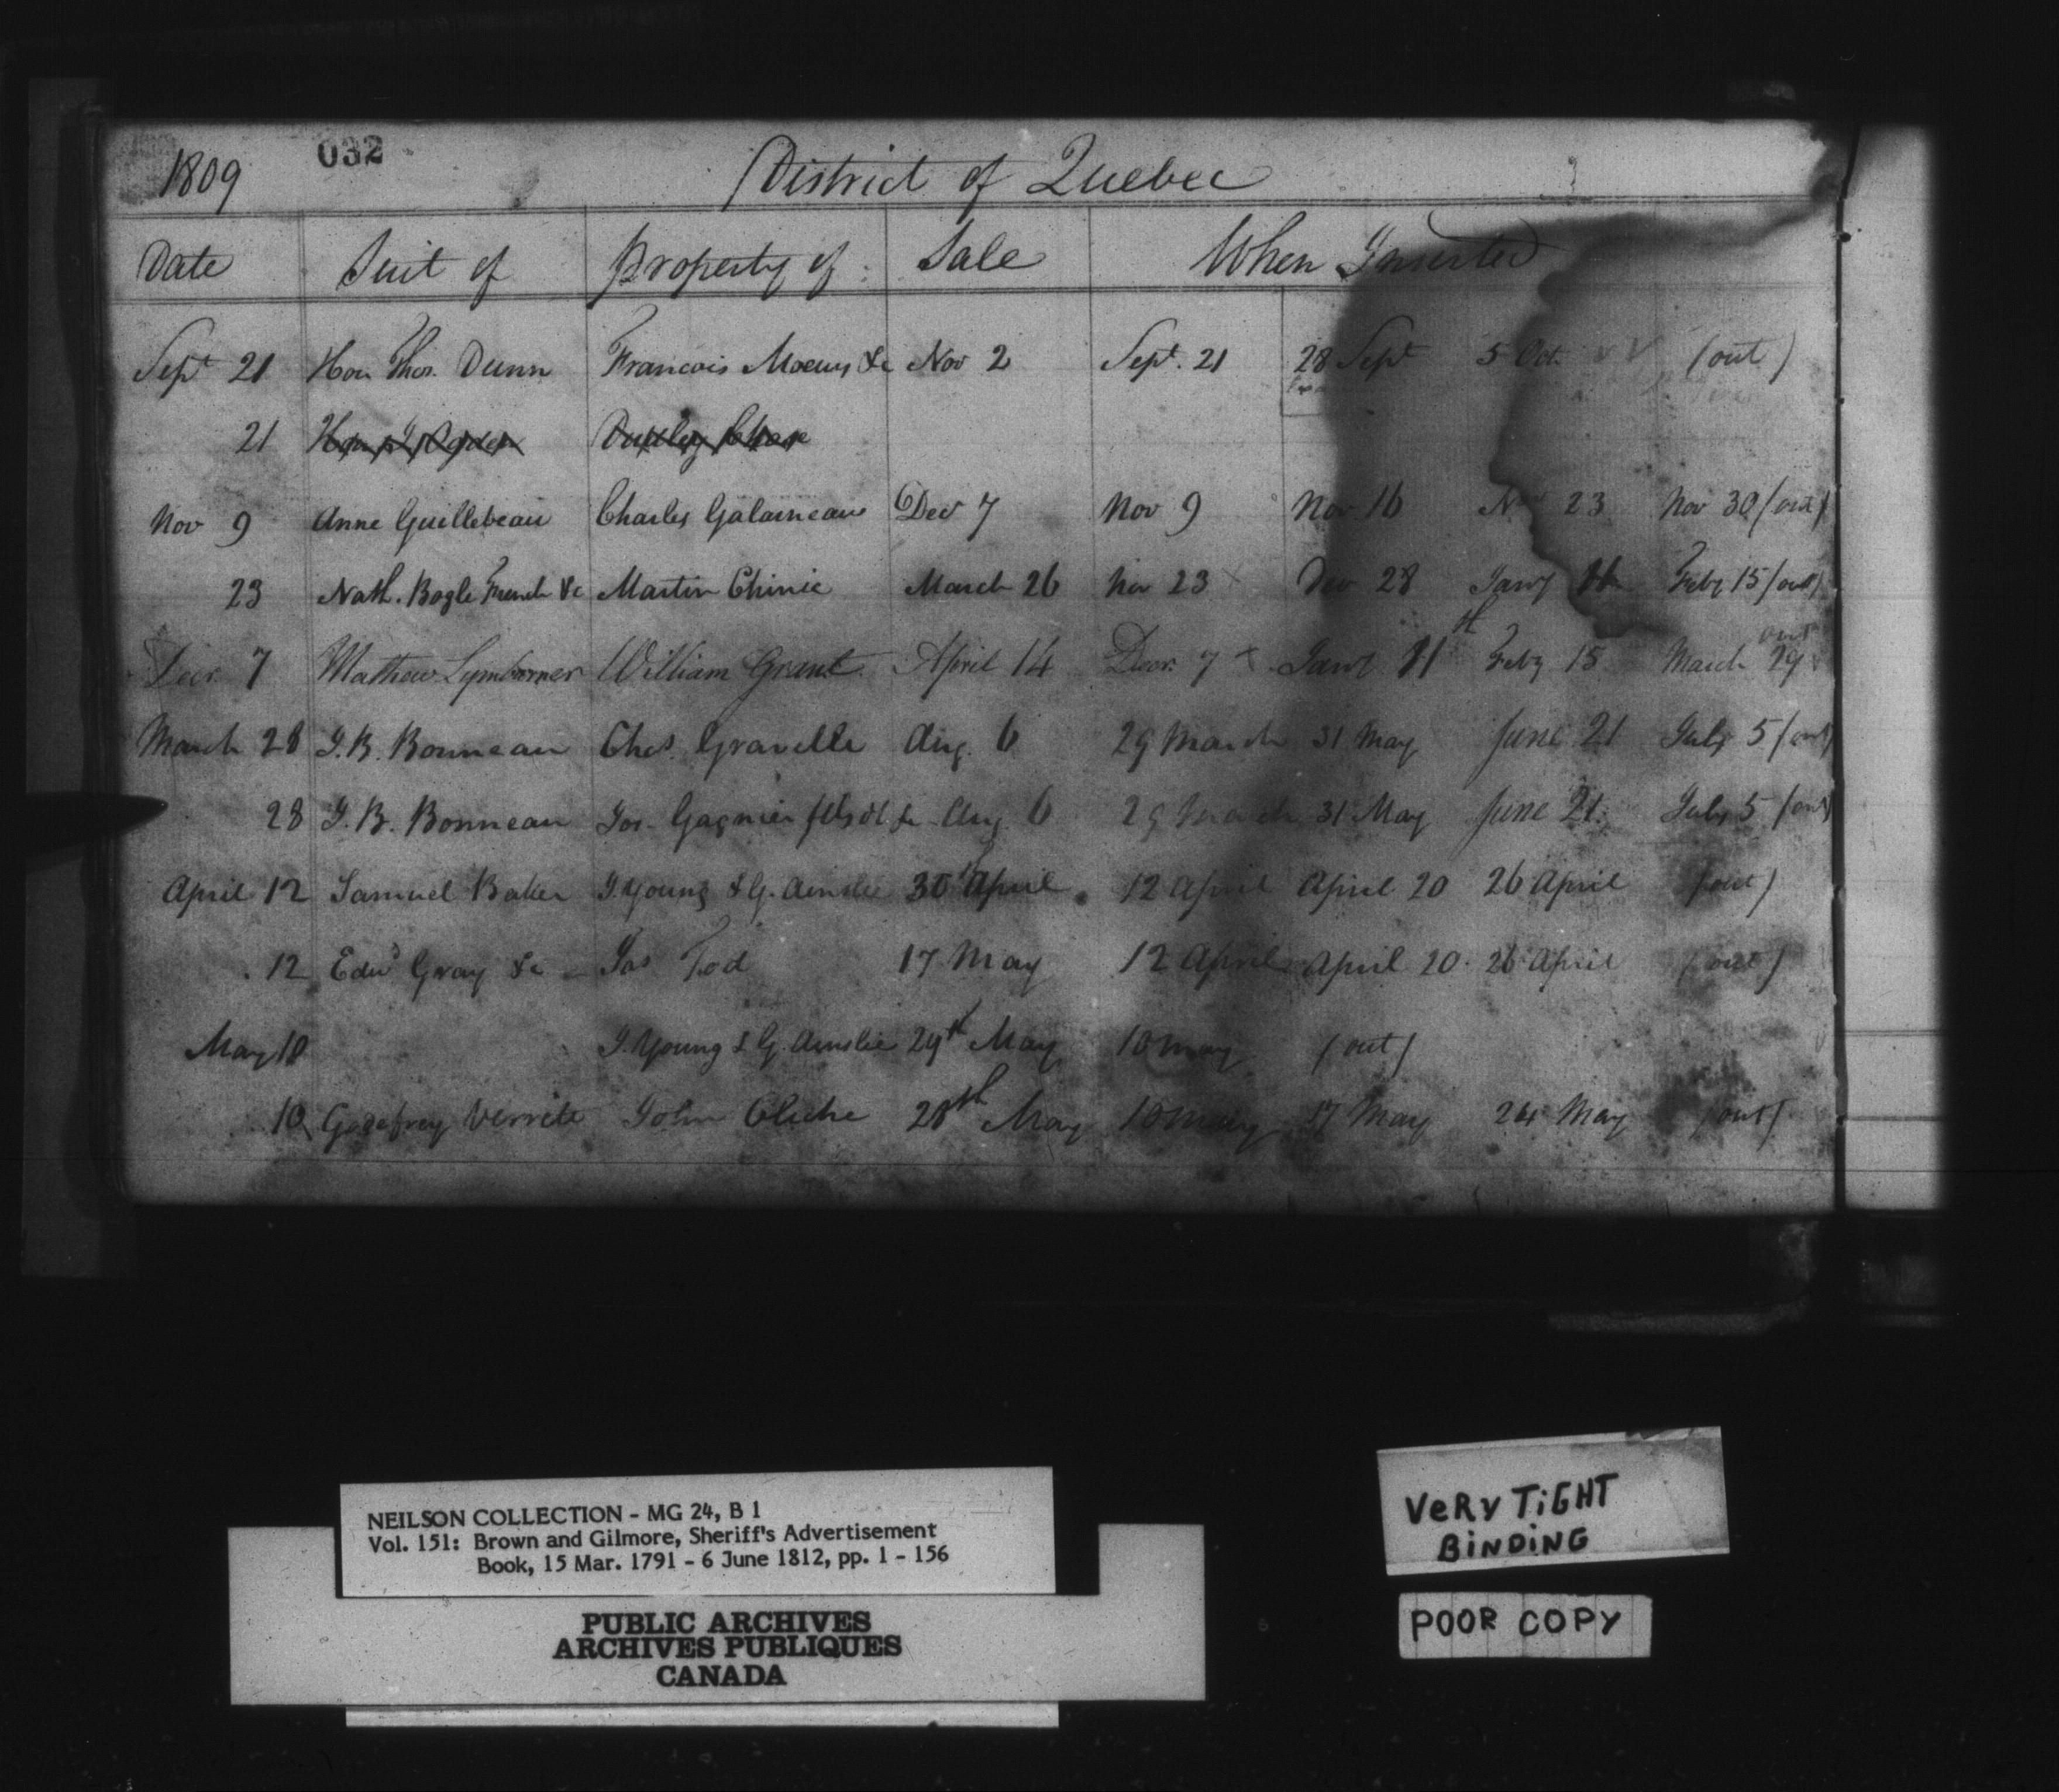 1809 032 District of Quebec
Date Suit of Property of Sale When Inserted
Sept 21 Hon Thos. Dunn Francois &c Nov 2 Sept. 21 28 Sept 5 Oct. (out)
21
Nov 9 Anne Guillebeau Charles Galarneau Decr 7 Nov 9 Nov 16 Nov 23 Nov 30 (out)
23 Nath. Bogle French &c Martin Chinic March 26 Nov 23 x Decr 28 Jany Feby 15 (out)
Decr 7 Mathew Lymburner William Grant April 14 Decr. 7 x Jany 11th Feby 15 March 29 out
March 28 J. B. Bonneau Chs. Gravelle Aug. 6 29 March 31 May June 21 July 5 (out)
28 J. B. Bonneau Jos. Gagnier &c Aug. 6 29 March 31 May June 21 July 5 (out)
April 12 Samuel Baker J. Young & G. Ainslie 30 April 12 April April 20 26 April (out)
12 Edwd Gray &c Jas Tod 17 May 12 April April 20 26 April (out)
May 10 J. Young & G. Ainslie 29th May 10 May (out)
10 Godefroy Verrett John Cliche 28th May 10 May 17 May 24 May (out)
NEILSON COLLECTION - MG 24, B 1
Vol. 151: Brown and Gilmore, Sheriff's Advertisement
Book, 15 Mar. 1791 - 6 June 1812, pp. 1 - 156
PUBLIC ARCHIVES
ARCHIVES PUBLIQUES
CANADA
VERY TIGHT
BINDING
POOR COPY